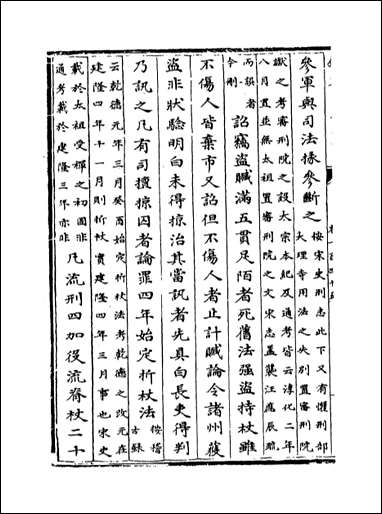 參軍與司法掾參斷之按宋史刑志此下又有懼刑部
大理寺用法之失別置審刑院
讞之考審刑院之設太宗本紀及通考皆云淳化二年
八月置並無太祖置審刑院之文宋志蓋襲汪應辰疏
而誤者
今刪 詔竊盜贓滿五貫足陌者死舊法强盜持杖雖
不傷人皆棄市又詔但不傷人者止計贓論令諸州獲
盜非狀驗明白未得掠治其當訊者先具白長吏得判
乃訊之凡有司擅掠囚者論罪四年始定折杖法按稽
古錄
云乾德元年三月癸酉始定折杖法考乾德之改元在
建隆四年十一月則折杖實建隆四年三月事也宋史
載於太祖受禪之初固非
通考載於建隆三年亦非 凡流刑四加役流脊杖二十